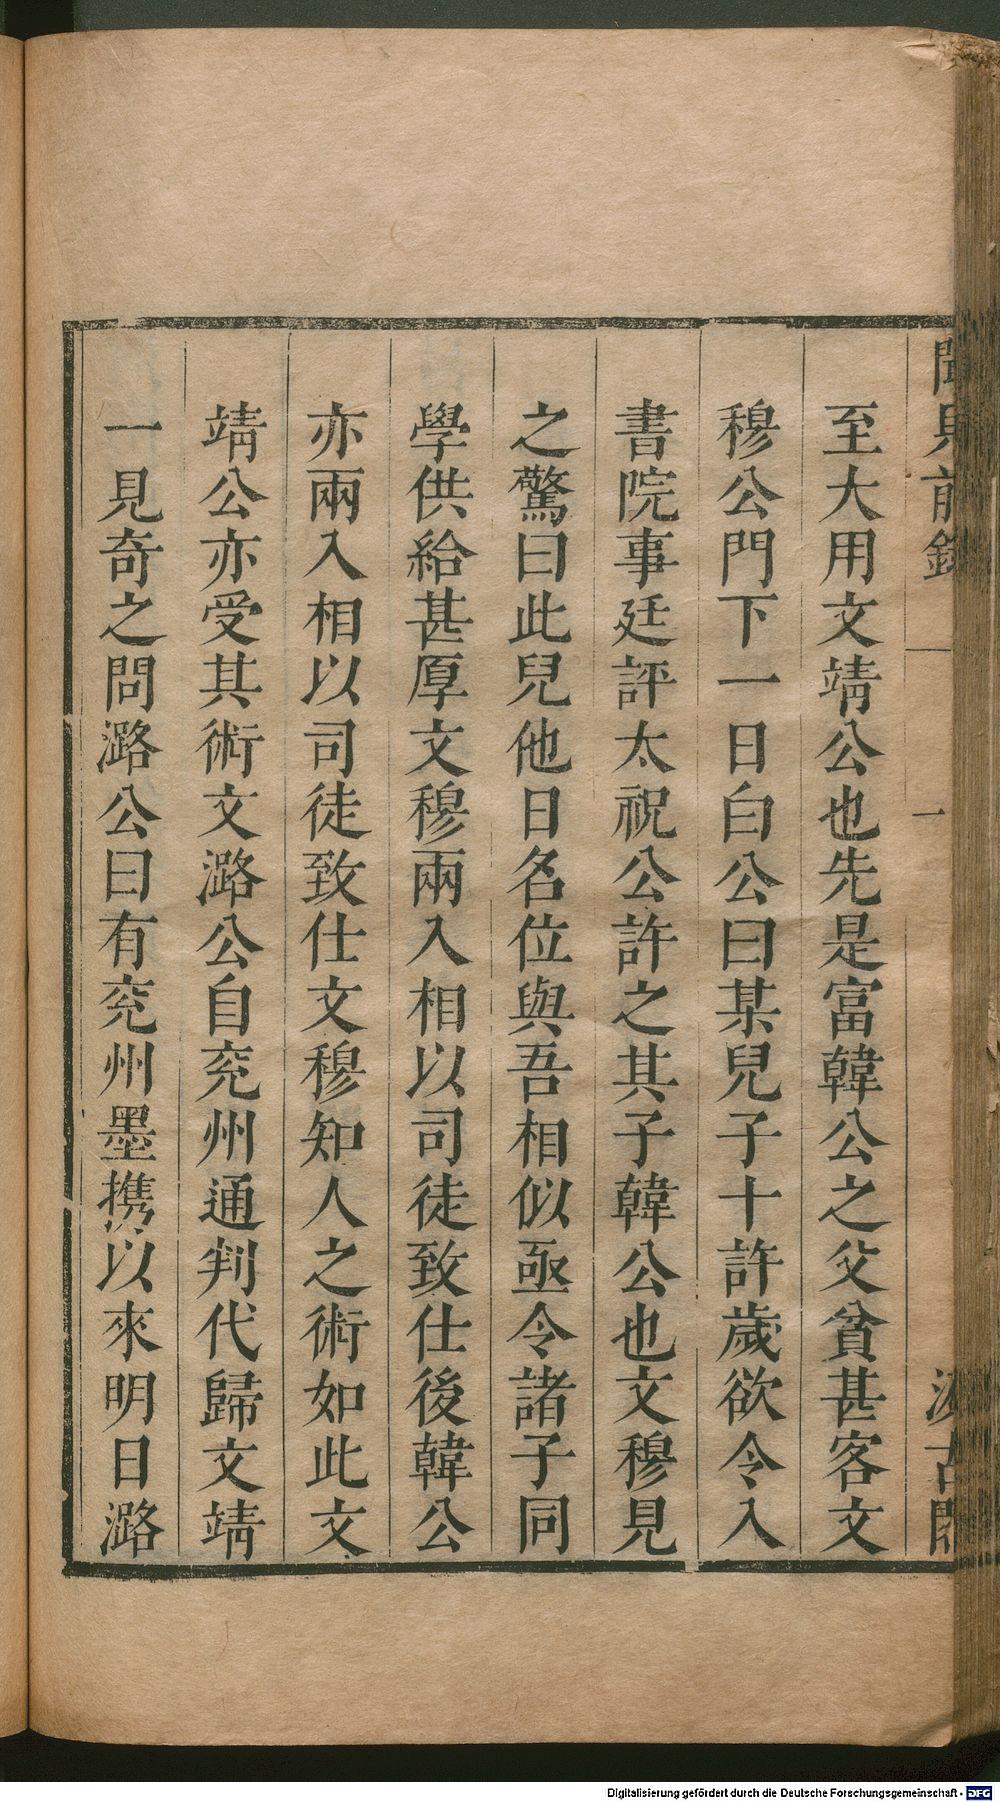 聞見前錄 一 汲古閣
至大用文靖公也先是富韓公之父貧甚客文
穆公門下一日白公曰某兒子十許歲欲令入
書院事廷評太祝公許之其子韓公也文穆見
之驚曰此兒他日名位與吾相似亟令諸子同
學供給甚厚文穆兩入相以司徒致仕後韓公
亦兩入相以司徒致仕文穆知人之術如此文
靖公亦受其術文潞公自兖州通判代歸文靖
一見奇之問潞公曰有兖州墨携以來明日潞
Digitalisierung gefördert durch die Deutsche Forschungsgemeinschaft - DFG